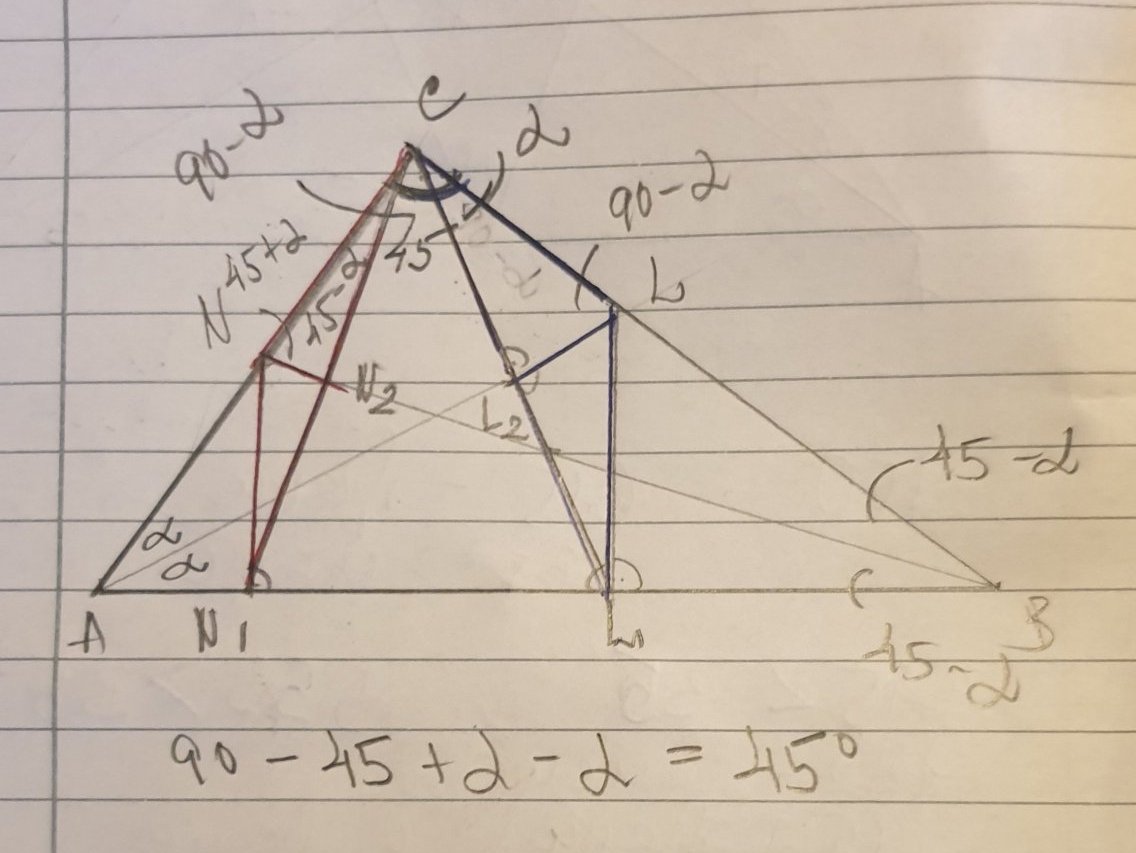 C
90-α
α
90-α
45
45+α
45-α
N
L
N2
L2
45-α
α
α
A
N1
L1
B
45-α
90 - 45 + α - α = 45°